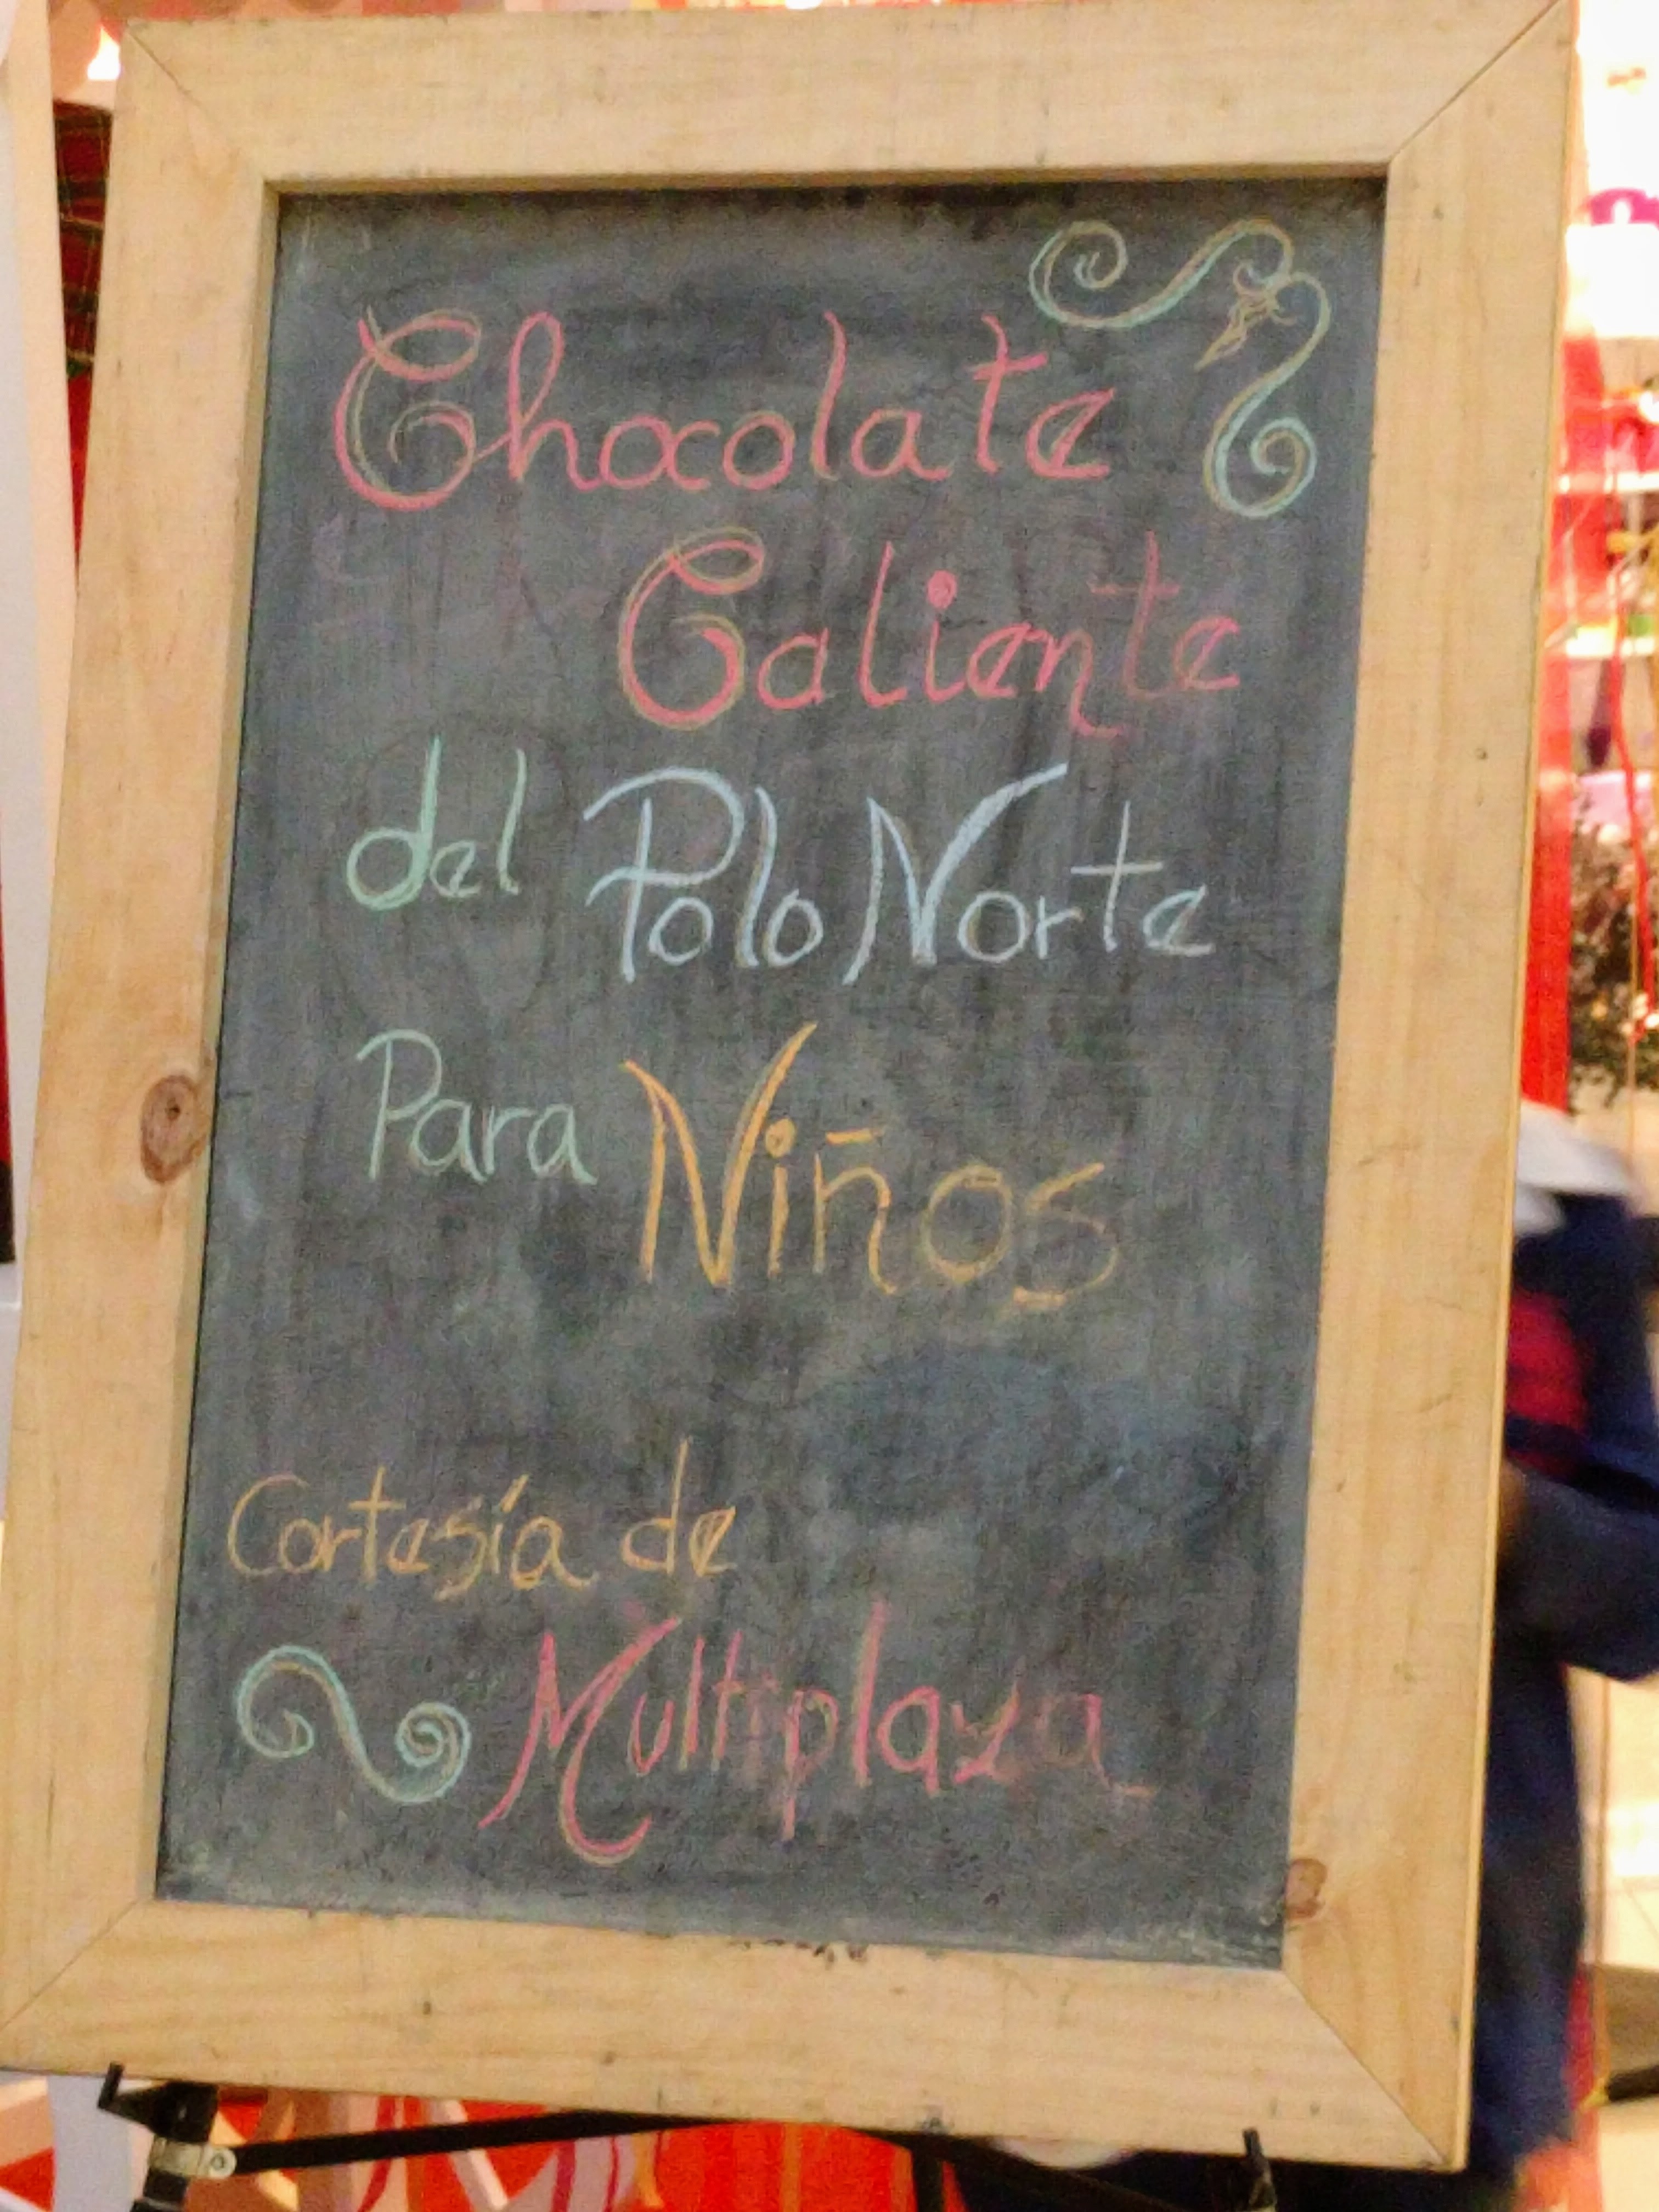 Chocolate
Caliente
del Polo Norte
Para Niños
Cortesía de
Multiplaza